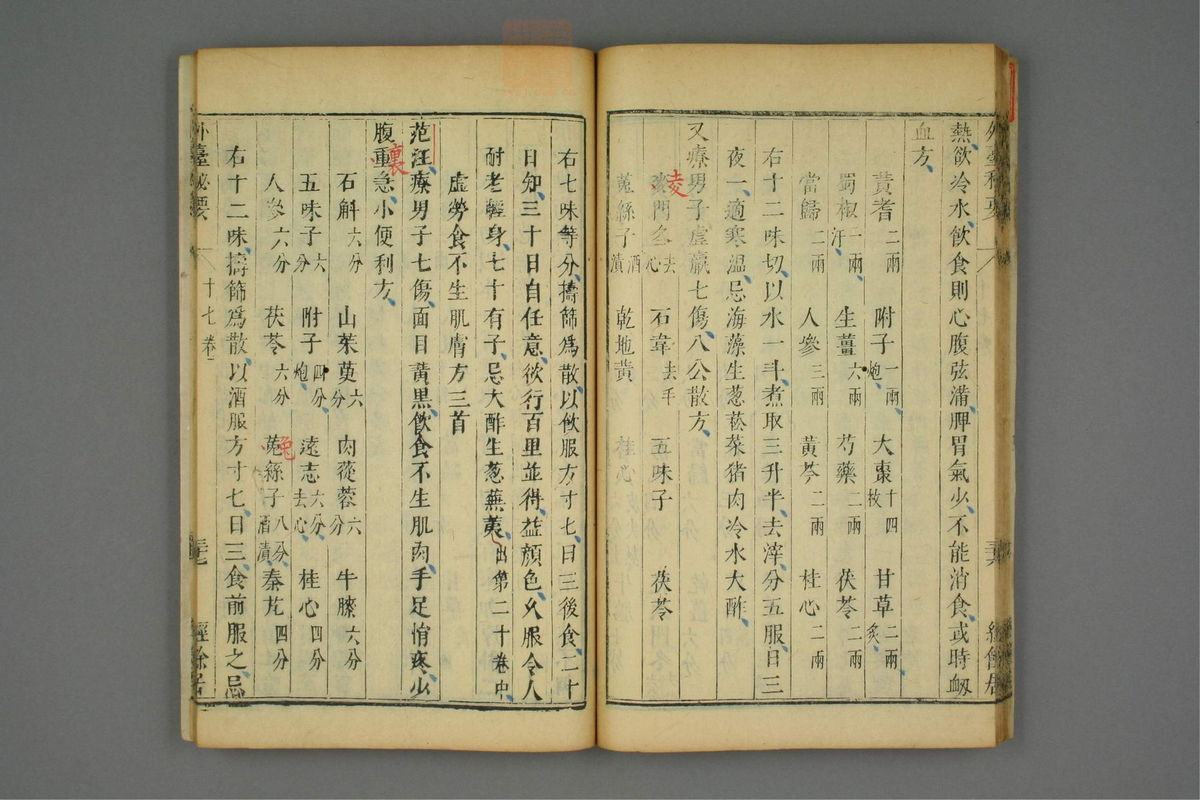 熱欲冷水飲食則心腹弦滿脾胃氣少不能消食或時衂
血方
黄耆二兩 附子一兩炮 大棗十四枚 甘草二兩炙
蜀椒二兩汗 生薑六兩 芍藥二兩 茯苓二兩
當歸二兩 人參三兩 黄芩二兩 桂心二兩
右十二味切以水一斗煮取三升半去滓分五服日三
夜一適寒温忌海藻生葱菘菜猪肉冷水大酢
又療男子虛羸七傷八公散方
麥門冬去心 石韋去毛 五味子 茯苓
菟絲子酒漬 乾地黄 桂心
凌
右七味等分擣篩爲散以飲服方寸七日三後食二十
日知三十日自任意欲行百里並得益顔色久服令人
耐老輕身七十有子忌大酢生葱蕪荑出第二十卷中
虛勞食不生肌膚方三首
范汪療男子七傷面目黄黒飲食不生肌肉手足惰疼少
腹重急小便利方
裏
石斛六分 山茱萸六分 肉蓯蓉六分 牛膝六分
五味子六分 附子四分炮 遠志六分去心 桂心四分
人參六分 茯苓六分 菟絲子八分酒漬 秦艽四分
兔
右十二味擣篩爲散以酒服方寸七日三食前服之忌
外臺祕要 十七卷 三七 經餘居